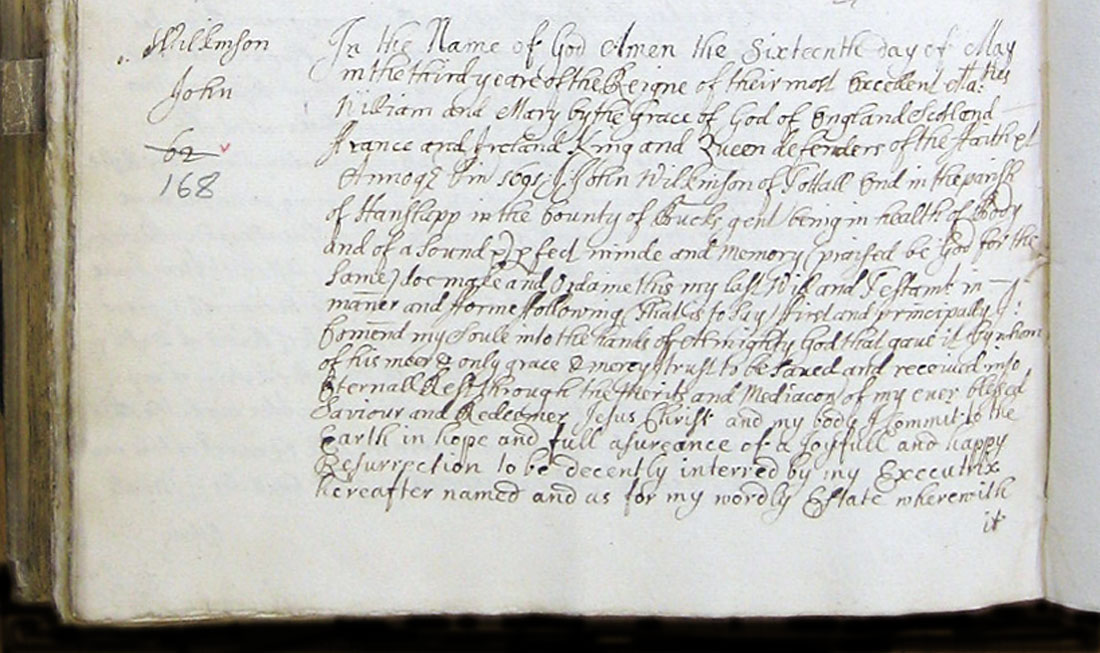 Wilkinson
John
62
168
In the Name of God Amen the Sixteenth day of May
in the third yeare of the Reigne of their most Excellent Ma:ties
William and Mary by the Grace of God of England Scotland
France and Ireland King and Queen defenders of the Faith &c
Annoq Dm 1691 I John Wilkinson of Tottall End in the parish
of Hanslapp in the County of Bucks gent being in health of Body
and of a sound & pfect minde and Memory (praised be God for the
same) doe make and Ordaine this my last Will and Testamt in
maner and forme following That is to say / first and principally I:
Comend my Soule into the hands of Almighty God that gave it by whom
of his meer & only grace & mercy I trust to be saved and received into
Eternall Rest through the Merits and Mediacon of my ever blessed
Saviour and Redeemer Jesus Christ and my body I Commit to the
Earth in hope and full asureance of a Joyfull and happy
Resurrection to be decently interred by my Executrix
hereafter named and as for my wordly Estate wherewith
it